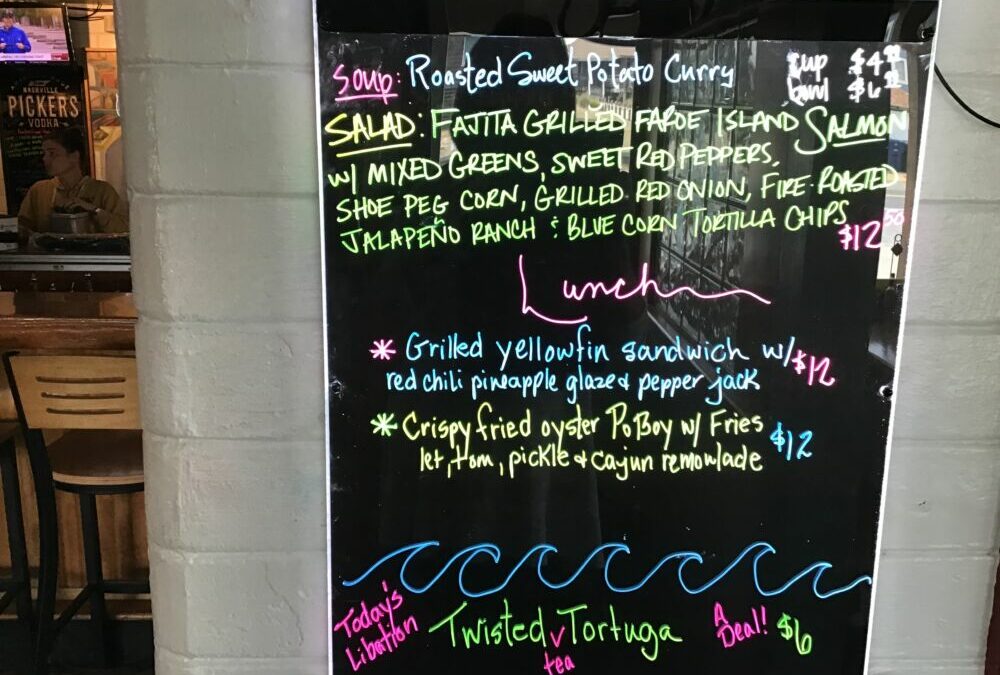 NASHVILLE
PICKERS
VODKA
Soup: Roasted Sweet Potato Curry
Cup $4
Bowl $6
SALAD: FAJITA GRILLED FAROE ISLAND SALMON
W/ MIXED GREENS, SWEET RED PEPPERS,
SHOE PEG CORN, GRILLED RED ONION, FIRE-ROASTED
JALAPEÑO RANCH & BLUE CORN TORTILLA CHIPS
$12.50
Lunch
* Grilled yellowfin sandwich w/ $12
red chili pineapple glaze & pepper jack
* Crispy fried oyster PoBoy w/ Fries $12
let, tom, pickle & cajun remoulade
Today's
Libation
Twisted tea Tortuga
A
Deal!
$6